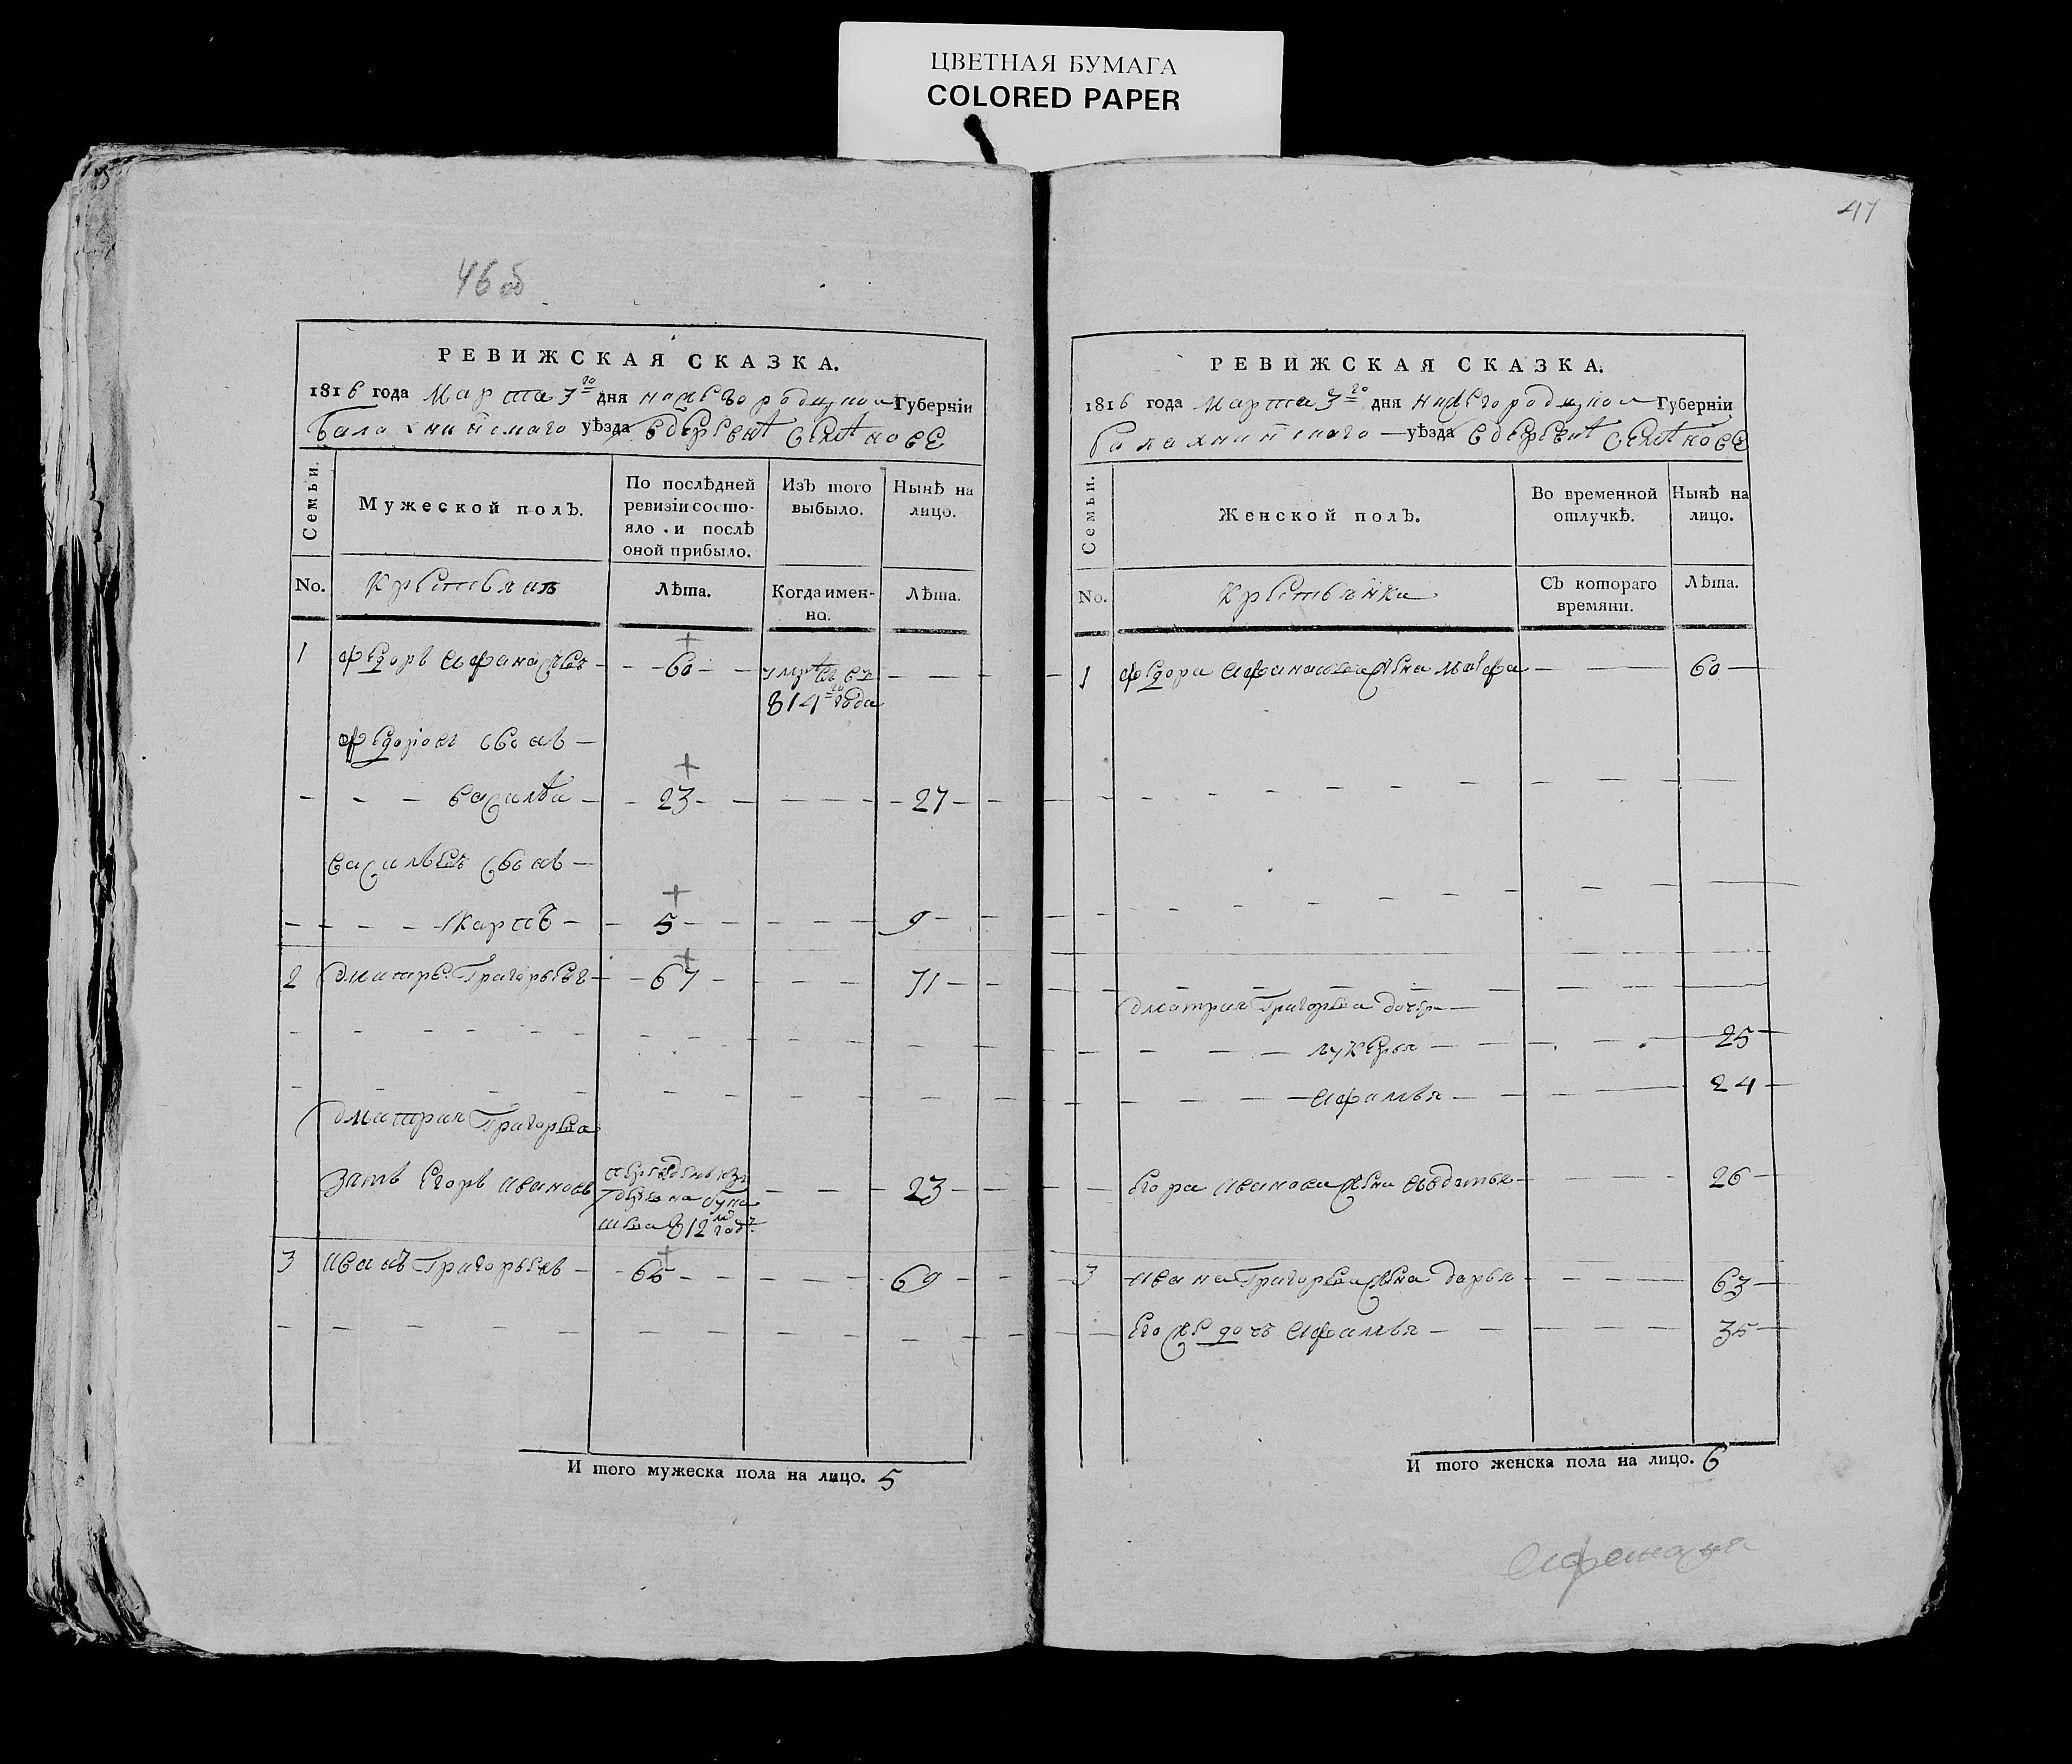 ЦВЕТНАЯ БУМАГА
COLORED PAPER
46 об
РЕВИЖСКАЯ СКАЗКА.
1816 года Марта 3го дня нижегородцкои Губерніи
Балахнинскаго уѣзда вдеревнѣ
Семьи.
Мужеской полъ.
По послѣдней ревизіи состо-
яло и послѣ
оной прибыло.
Изъ того
выбыло.
Нынѣ на
лицо.
No.
Крестьянъ
Лѣта.
Когда имен-
но.
Лѣта.
1 Федоръ Афанасьевъ 60 умре въ
814го года
Федоровъ сынъ
василѣи 23 27
василѣевъ сынъ
карпъ 5 9
2 дмитреи Григорьевъ 67 71
дмитрия Григорьева
зять Егоръ ивановъ 23
812 году
3 иванъ Григорьевъ 65 69
И того мужеска пола на лицо. 5
47
РЕВИЖСКАЯ СКАЗКА.
1816 года Марта 3го дня нижегородцкои Губерніи
Балахнинскаго уѣзда вдеревнѣ
Семьи.
Женской полъ.
Во временной
отлучкѣ.
Нынѣ на
лицо.
No.
Крестьянки
Съ котораго
времяни.
Лѣта.
1 Федора Афанасьева жена мавфа 60
дмитрия Григорьева дочери
лукерья 25
афимья 24
Егора иванова жена авдотья 26
3 ивана Григорьева жена дарья 63
Его же дочь афимья 35
И того женска пола на лицо. 6